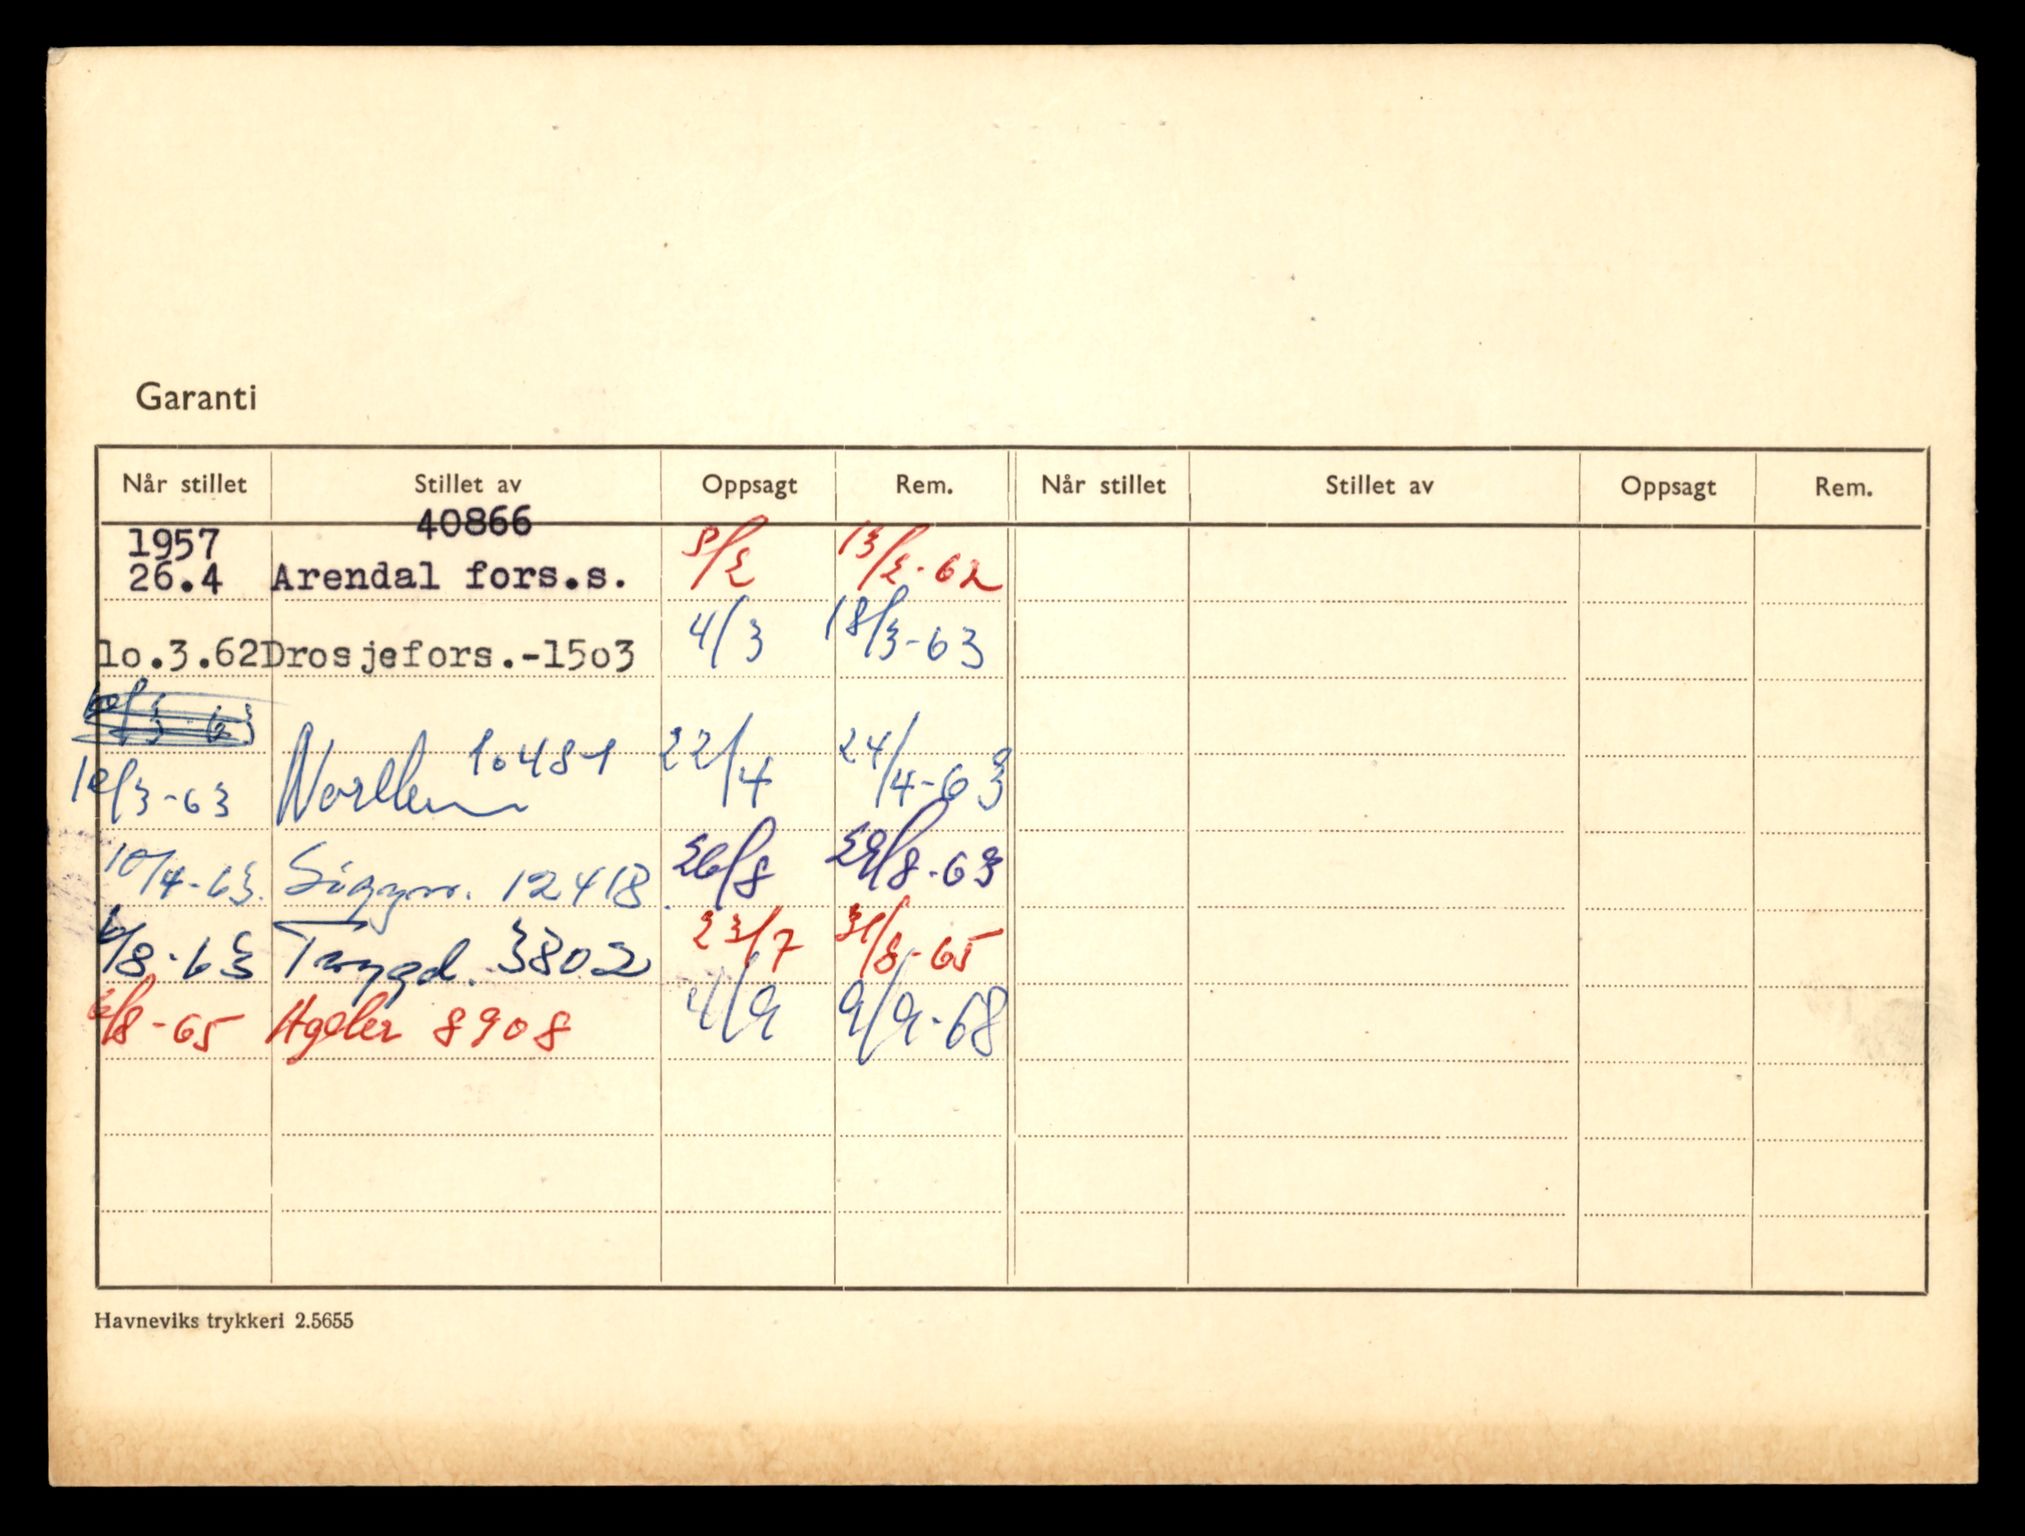 Garanti
Når stillet Stillet av Oppsagt Rem. Når stillet Stillet av Oppsagt Rem.
40866
1957
26.4 Arendal fors.s. 8/2 13/2-62
1o.3.62 Drosjefors.-15o3 4/3 18/3-63
10481 22/4 24/4-63
12/3-63
10/4-63. 12418 26/8 29/8-63
6/8-63 Trygd. 3802 23/7 31/8-65
6/8-65 Agder 8908 4/9 9/9-68
Havneviks trykkeri 2.5655